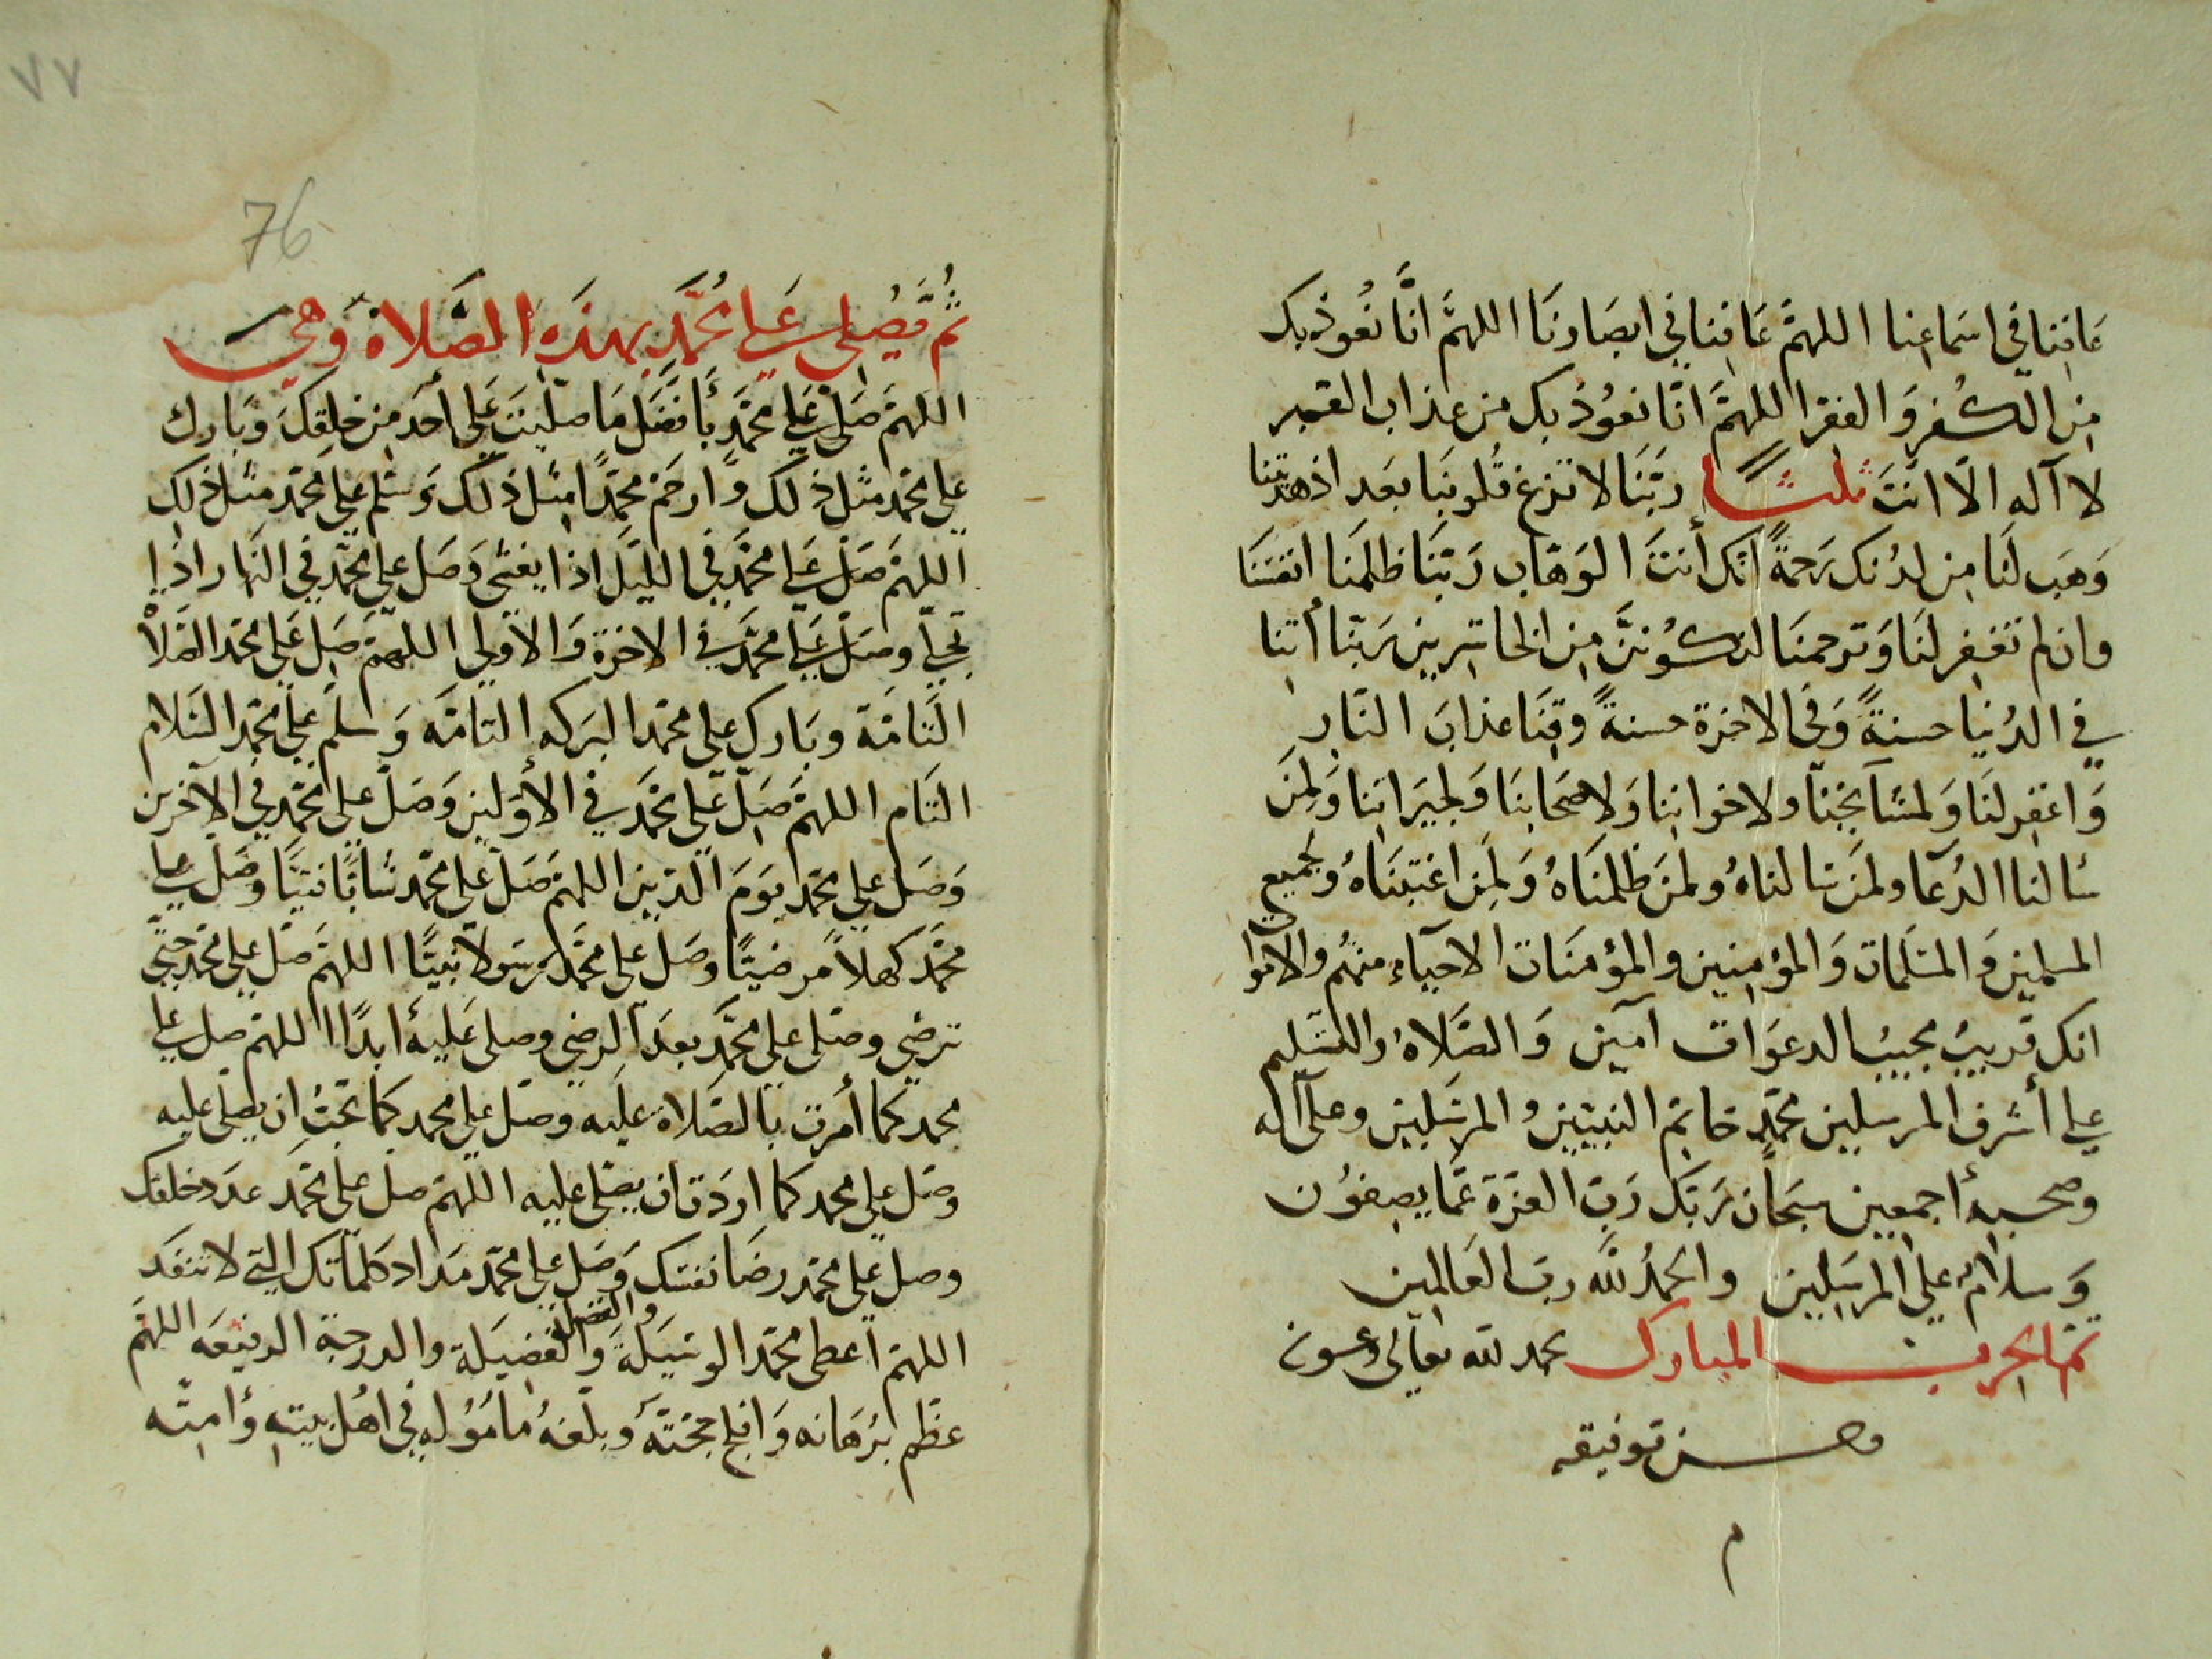 عَافِنا في اسَماعِنا اللهمَّ عَافِنا في ابصَارنَا اللهمَّ انَّا نَعُوذ بك
مِن الكُفرِ وَ الفقر اللهمَّ انّا نعوُذ بك من عذاب القبر
لا آله الّا انَتَ ثلثًا ربَّنَا لا تزغ قُلوبنَا بعَد اذ هديتنا
وَهَب لَنَا مِن لدُنك رَحمةً انّك أنتَ الوَهّاب رَبّنَا ظلمَنا انفسَنَا
وان لم تغفِر لنَا وَترحمنَا لنكوُننَّ مِن الخاسِرين رَبّنا أتِنا
في الدُنيا حسنةً وَفي الاخرة حسنةً وقِنَا عذابَ النّارِ
وَاغفِر لنَا وَلمشَآيخنا ولاخواننا وَلاصَحَابنَا وَلجيَراننا وَلمِنَ
سَالنا الدُعَا ولمَن سَالناهُ ولمنَ ظلمنَاهُ وَلمِن اغتبَناهُ وَلجميع
المسلمين وَالمسَلمَات وَالمؤمِنين والمؤمنَات الاحيآء منهُم والاموا
انك قريبُ مجيبُ الدعَوَات آمين وَالصَّلاهُ والتسَّليم
علي أشرف المرسلين محمّدٍ خاتِم النبيّين والمرسَلين وعلى آله
وصحبه أجمعين سبَحانَ رَبّك رَبّ العزّة عَمّا يصِفوُن
وَسلامٌ علي المرسَلين والحمدُ للّه ربّ العَالمين
تم الحزب المبارك بحمد لله تعالى وعون
وحسن توفيقه
م
٧٧
76
ثُم يُصَلى عَلي محُمَّد بهذَه الصَّلاة وَهيَ
اللهمَّ صَلّ عَلي محمَّدٍ بأفضَل مَا صَلّيَتَ عَلي أحَد مِن خلقِكَ وَبَارك
علي محمّد مثل ذلك وَارحَم محمّدًا مثل ذلك وَسَلم علي محمّد مثل ذلك
اللهمَّ صَلّ عَلي محمَّد في الليّل اذا يغشى وَصَل علي محمّد في النهار اذا
تجلّي وصَلّ عَلي محمَّد في الاخرة وَالاولي اللهمّ صَلّ عَلي محمّد الصَّلاة
التَّامَّة وبَارك علي محمّد البَركه التامّه وَسلّم علي محمّد السَّلام
التَام اللهمَّ صَلّ عَلي محمَّد في الأوّلين وَصَلّ علي محمّد في الآخرين
وَصَل علي محمّد يوَمَ الدّين اللهمَّ صَلّ عَلي محمّد شابًّا فتيًّا وصَل علي
محمَّد كهلاً مَرضيًّا وصَل على محمَّد رَسَولاً نبيًّا اللهمّ صَلّ علي محمّد حتّي
ترضي وصَلى علي محمَّد بعدَ الرضي وصلى عَليه أبدًا اللهمّ صل علي
محمد كما أمرت بالصَلاة عليه وصَل علي محمد كما تحبُ ان يصلي عليه
وصَل علي محمد كما اردَت ان يصَلى عليه اللهمّ صل على محمّد عدَد خلقك
وصل علي محمّد رضَا نفسَك وَصَل علي محمّد مدَاد كلماَتك التي لا تنفَد
اللهمّ اعطى محمّد الوسَيَلة وَالفضل وَالفَضيَلة والدرجة الرفيعَه اللهمَّ
عظم بُرهَانه وَافلج حجّتَه وَبلّغهُ مأمَوُله في اهُل بيته وأمتِه